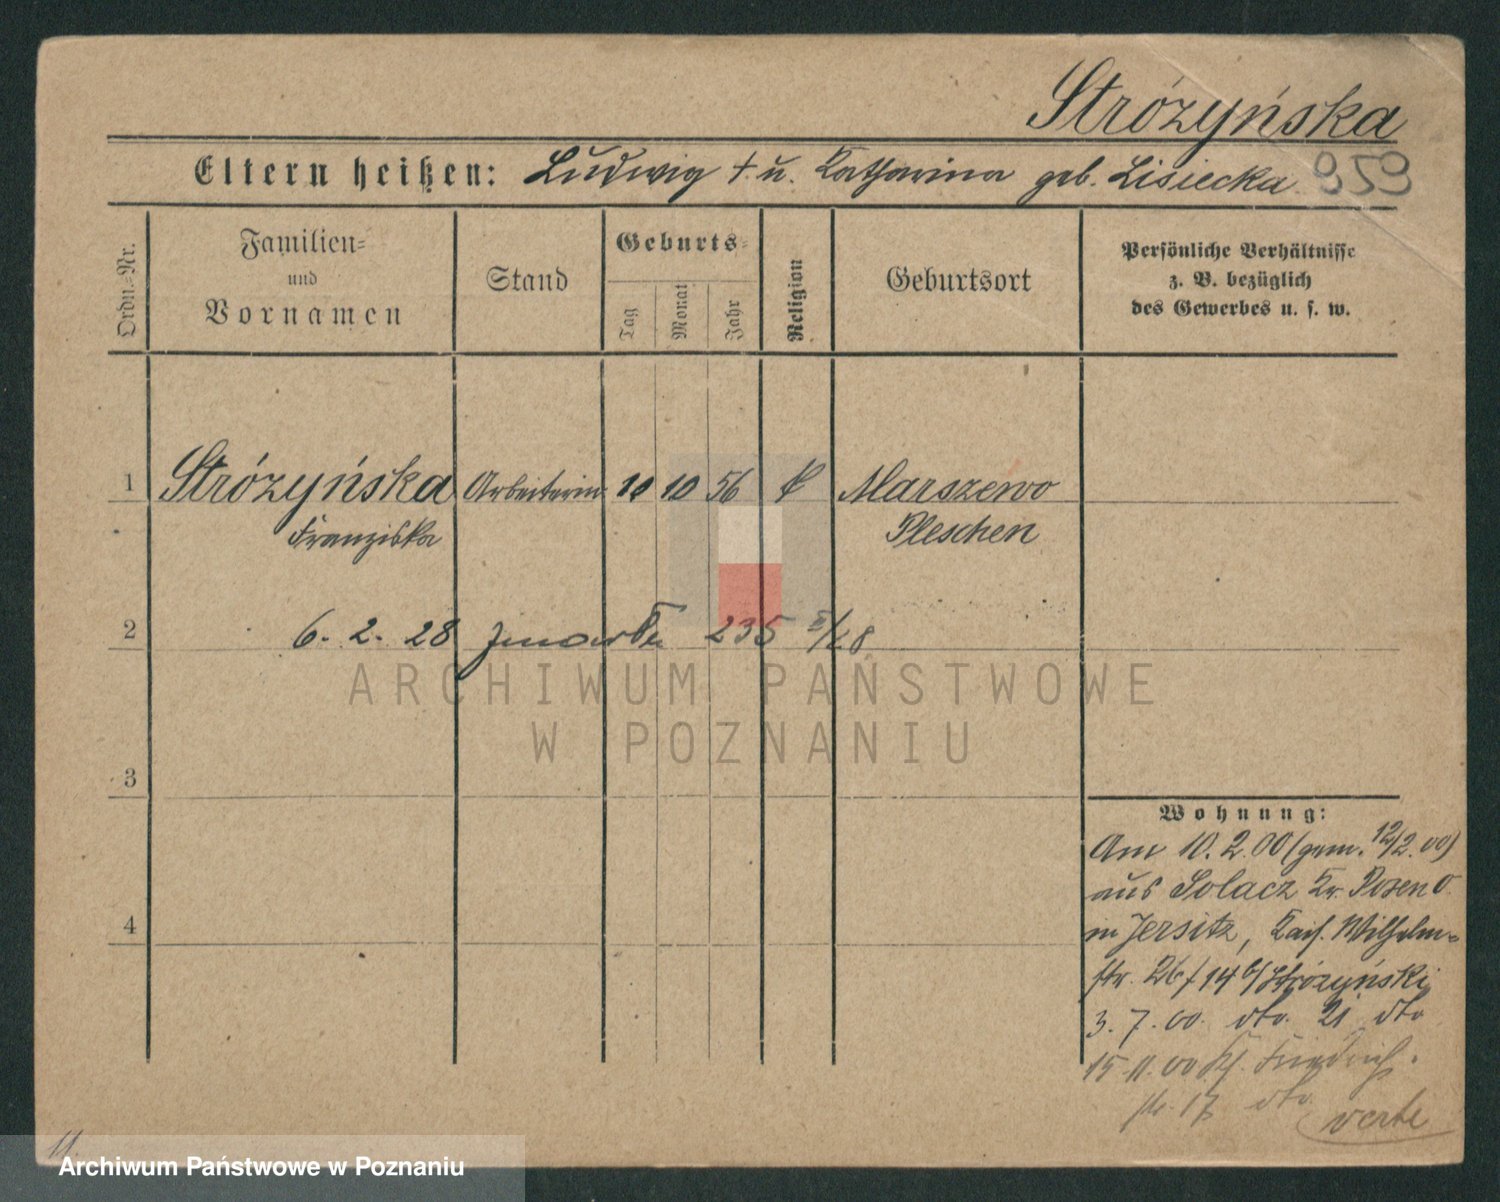 Stróżyńska
Eltern heißen: Ludwig † u. Katharina geb. Lisiecka 959
Ordn.-Nr.
Familien-
und
Vornamen
Stand
Geburts-
Tag
Monat
Jahr
Religion
Geburtsort
Persönliche Verhältnisse
z. B. bezüglich
des Gewerbes u. s. w.
1 Stróżyńska Arbeiterin 10 10 56 k Marszewo
Franziska Pleschen
2 6. 2. 28 zmarła 235 II/28
ARCHIWUM PAŃSTWOWE
W POZNANIU
3
4
Wohnung:
Am 10. 2. 00 (gem. 12/2. 00)
aus Solacz Kr. Posen O.
in Jersitz, Kais. Wilhelm-
str. 26/14 b/Stróżyński
3. 7. 00. dto. 21 dto
15. 11. 00 Friedrich
str. 17 dto.
verte
Archiwum Państwowe w Poznaniu